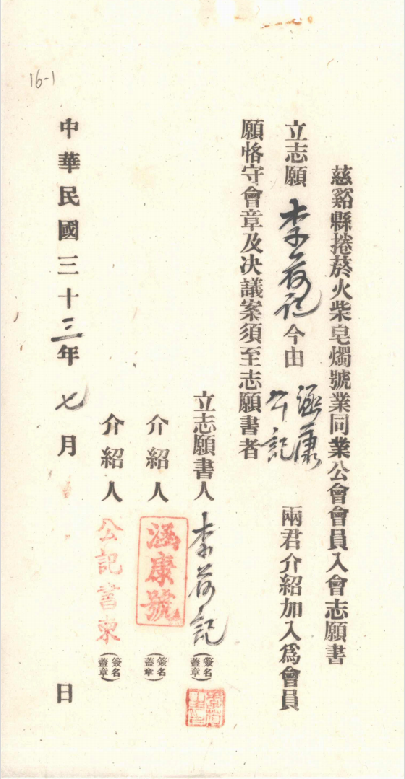 16-1
慈谿縣捲菸火柴皂燭號業同業公會會員入會志願書
立志願 李荷記 今由 涵康 公記 兩君介紹加入爲會員
願恪守會章及决議案須至志願書者
立志願書人 李荷記 (簽名蓋章)
介紹人 涵康號 (簽名蓋章)
介紹人 公記書柬 (簽名蓋章)
中華民國三十三年七月 日